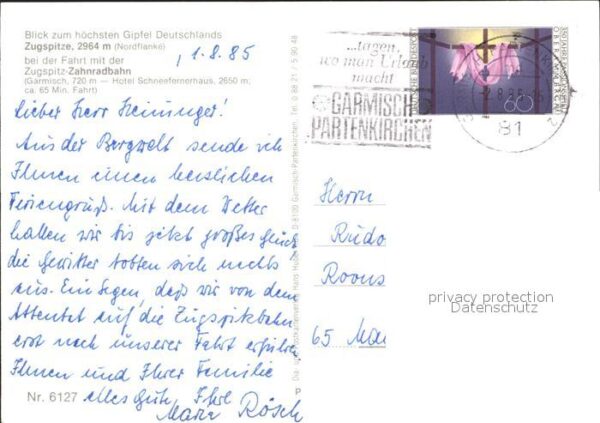 Blick zum höchsten Gipfel Deutschlands
Zugspitze, 2964 m (Nordflanke)
bei der Fahrt mit der
Zugspitz-Zahnradbahn
(Garmisch, 720 m — Hotel Schneefernerhaus, 2650 m;
ca. 65 Min. Fahrt)
1.8.85
Lieber Herr Heininger!
Aus der Bergwelt sende ich
Ihnen einen herzlichen
Feriengruß. Mit dem Wetter
hatten wir bis jetzt großes Glück
die Gewitter tobten sich nachts
aus. Ein Segen, daß wir von dem
Attentat auf die Zugspitzbahn
erst nach unserer Fahrt erfuhren
Ihnen und Ihrer Familie
alles Gute, Ihre
Maria Rösch
Nr. 6127
D-8100 Garmisch-Partenkirchen, Tel. 0 88 21 / 5 90 48
...tagen,
wo man Urlaub
macht
GARMISCH
PARTENKIRCHEN
DEUTSCHE BUNDESPOST
60
81
Herrn
Rudo
Roons
65 Mai
privacy protection
Datenschutz